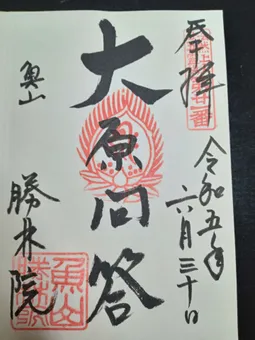 奉拝
令和五年
六月三十日
大原問答
魚山
勝林院
魚山